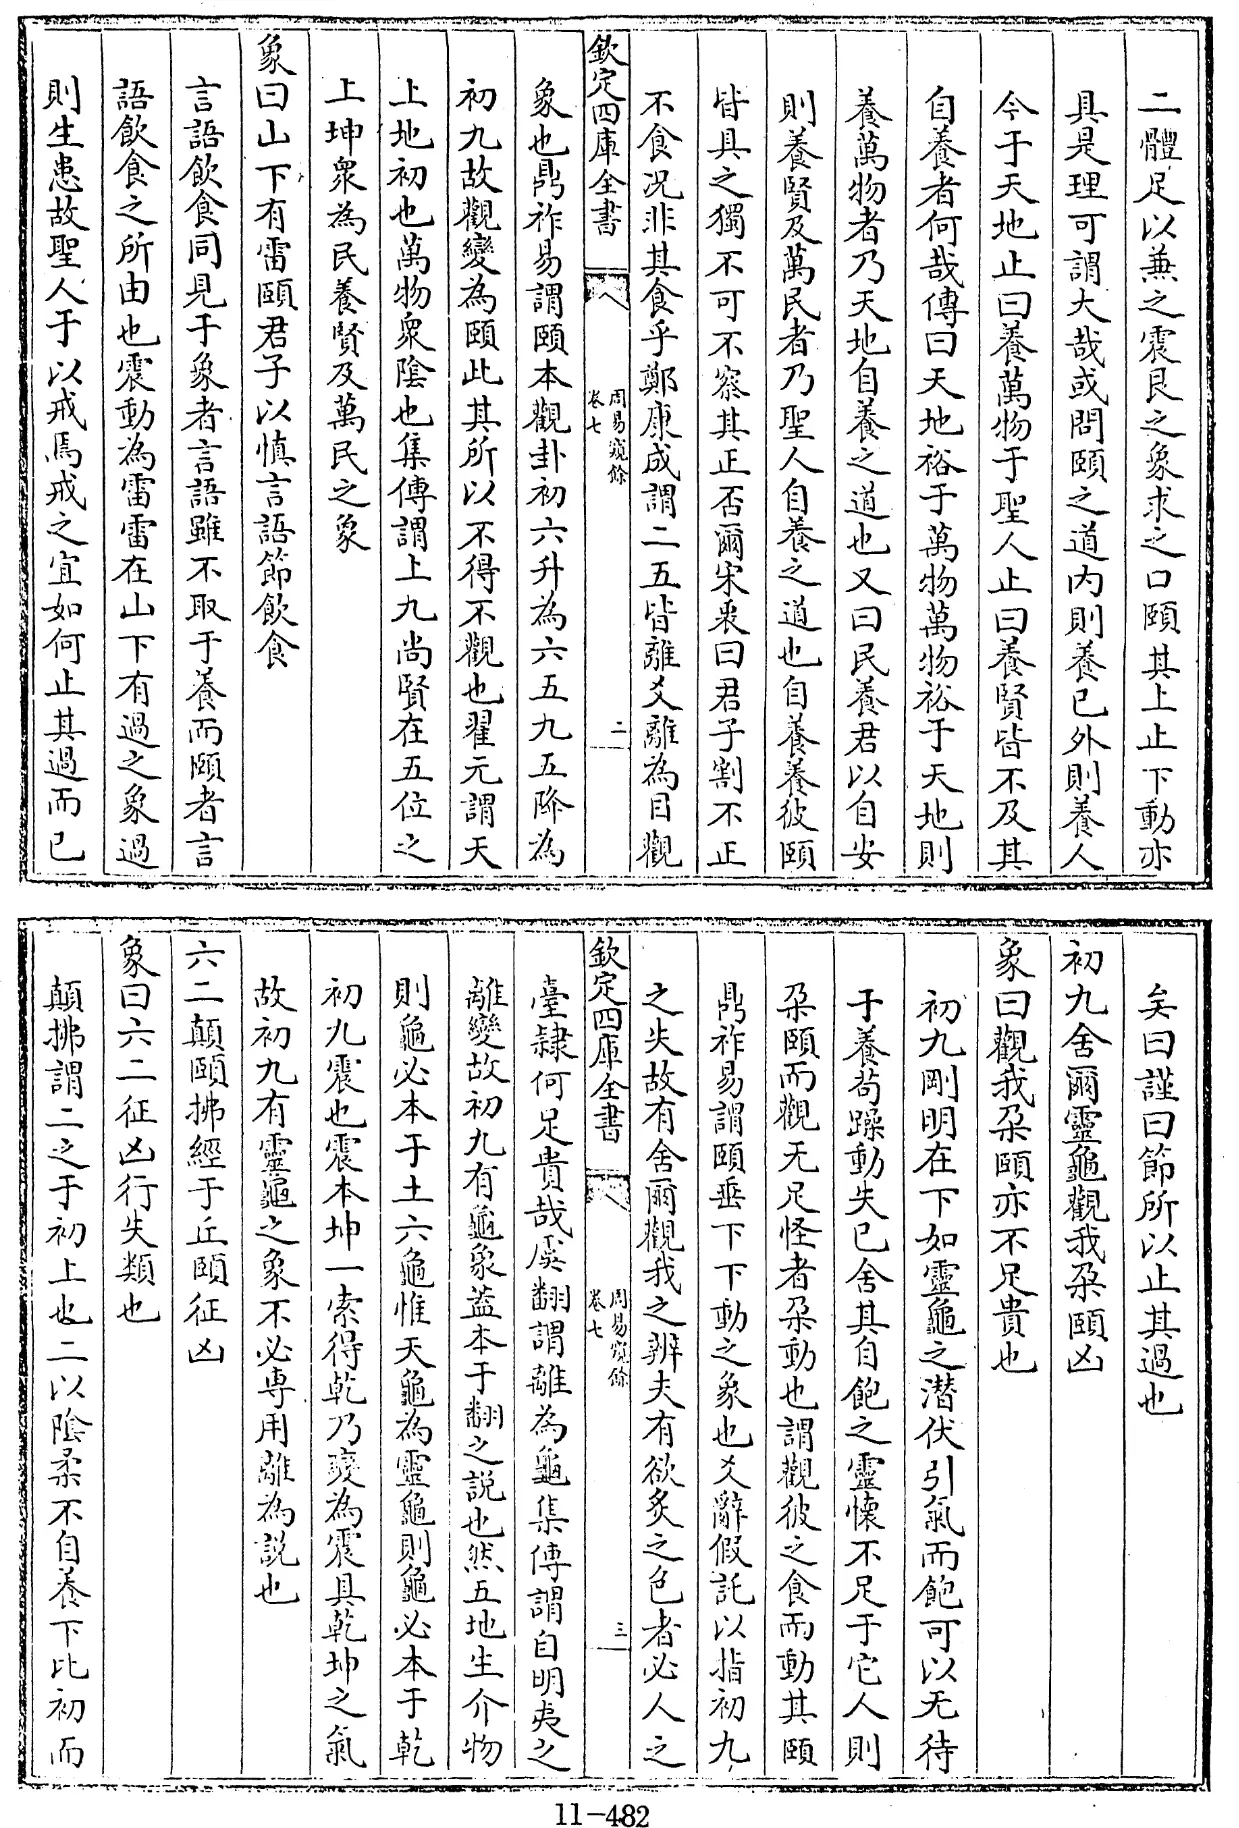 二體足以兼之震艮之象求之口頤其上止下動亦
具是理可謂大哉或問頤之道内則養已外則養人
今于天地止曰養萬物于聖人止曰養賢皆不及其
自養者何哉傳曰天地裕于萬物萬物裕于天地則
養萬物者乃天地自養之道也又曰民養君以自安
則養賢及萬民者乃聖人自養之道也自養養彼頤
皆具之獨不可不察其正否爾宋衷曰君子割不正
不食况非其食乎鄭康成謂二五皆離爻離為目觀
欽定四庫全書
周易窺餘
卷七
二
象也鼎祚易謂頤本觀卦初六升為六五九五降為
初九故觀變為頤此其所以不得不觀也翟元謂天
上地初也萬物衆陰也集傳謂上九尚賢在五位之
上坤衆為民養賢及萬民之象
象曰山下有雷頤君子以慎言語節飲食
言語飲食同見于象者言語雖不取于養而頤者言
語飲食之所由也震動為雷雷在山下有過之象過
則生患故聖人于以戒焉戒之宜如何止其過而已
矣曰謹曰節所以止其過也
初九舍爾靈龜觀我朶頤凶
象曰觀我朶頤亦不足貴也
初九剛明在下如靈龜之潜伏引氣而飽可以无待
于養苟躁動失已舍其自飽之靈懐不足于它人則
朶頤而觀无足怪者朶動也謂觀彼之食而動其頤
鼎祚易謂頤垂下下動之象也爻辭假託以指初九
之失故有舍爾觀我之辨夫有欲炙之色者必人之
欽定四庫全書
周易窺餘
卷七
三
臺隸何足貴哉虞翻謂離為龜集傳謂自明夷之
離變故初九有龜象蓋本于翻之説也然五地生介物
則龜必本于土六龜惟天龜為靈龜則龜必本于乾
初九震也震本坤一索得乾乃變為震具乾坤之氣
故初九有靈龜之象不必専用離為説也
六二顛頤拂經于丘頤征凶
象曰六二征凶行失類也
顛拂謂二之于初上也二以陰柔不自養下比初而
11-482